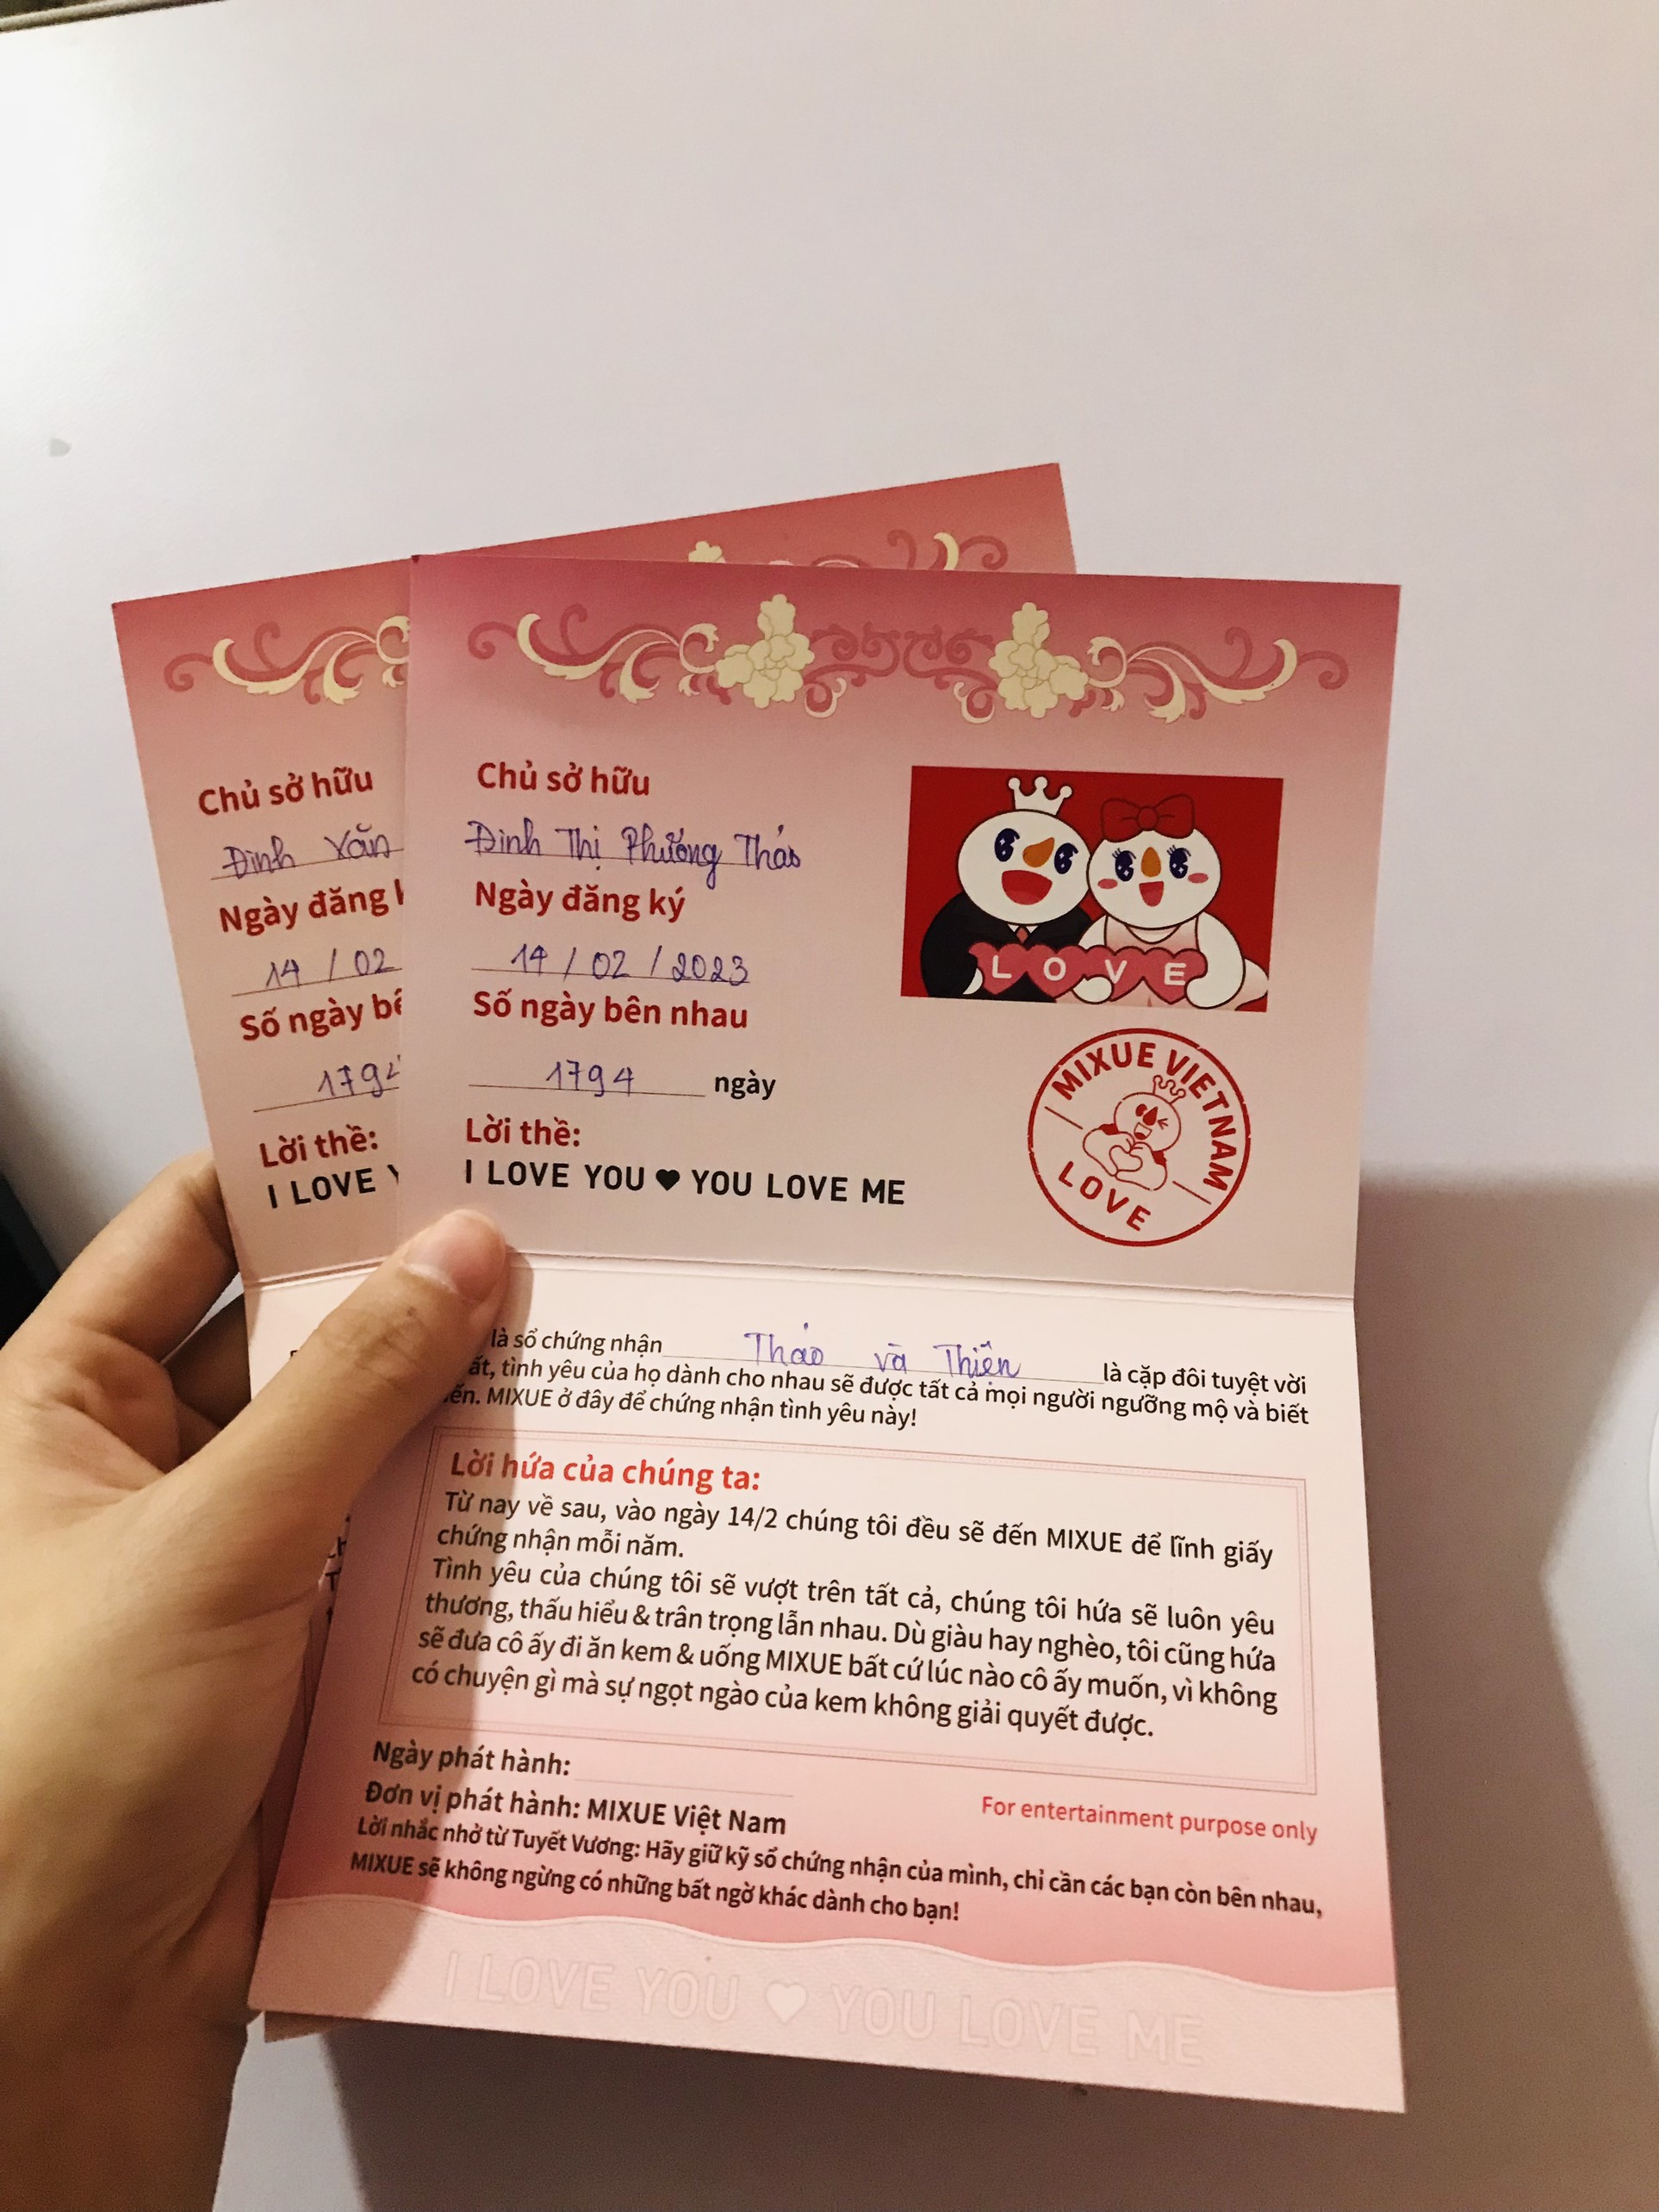 Chủ sở hữu
Đinh Văn
Ngày đăng
14 / 02
Số ngày
Lời thề:
I LOVE
Chủ sở hữu
Đinh Thị Phương Thảo
Ngày đăng ký
14 / 02 / 2023
Số ngày bên nhau
1794 ngày
Lời thề:
I LOVE YOU ♥ YOU LOVE ME
LOVE
MIXUE VIETNAM
LOVE
là sổ chứng nhận Thảo và Thiện là cặp đôi tuyệt vời
tình yêu của họ dành cho nhau sẽ được tất cả mọi người ngưỡng mộ và biết
MIXUE ở đây để chứng nhận tình yêu này!
Lời hứa của chúng ta:
Từ nay về sau, vào ngày 14/2 chúng tôi đều sẽ đến MIXUE để lĩnh giấy
chứng nhận mỗi năm.
Tình yêu của chúng tôi sẽ vượt trên tất cả, chúng tôi hứa sẽ luôn yêu
thương, thấu hiểu & trân trọng lẫn nhau. Dù giàu hay nghèo, tôi cũng hứa
sẽ đưa cô ấy đi ăn kem & uống MIXUE bất cứ lúc nào cô ấy muốn, vì không
có chuyện gì mà sự ngọt ngào của kem không giải quyết được.
Ngày phát hành:
Đơn vị phát hành: MIXUE Việt Nam
For entertainment purpose only
Lời nhắc nhở từ Tuyết Vương: Hãy giữ kỹ sổ chứng nhận của mình, chỉ cần các bạn còn bên nhau,
MIXUE sẽ không ngừng có những bất ngờ khác dành cho bạn!
I LOVE YOU ♥ YOU LOVE ME